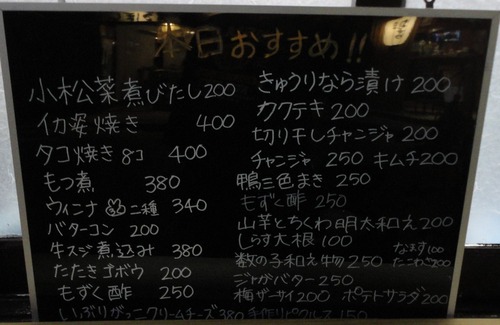 本日おすすめ!!
小松菜煮びたし200
イカ姿焼き 400
タコ焼き 8コ 400
もつ煮 380
ウィンナー 二種 340
バターコン 200
牛スジ煮込み 380
たたきゴボウ 200
もずく酢 250
いぶりがっこクリームチーズ 380
きゅうりなら漬け 200
カクテキ 200
切り干しチャンジャ 200
チャンジャ 250 キムチ200
鴨三色まき 250
もずく酢 250
山芋とちくわ明太和え200
しらす大根 100 なます100
数の子和え物 250 たこわさ200
ジャガバター 250
梅ザーサイ 200 ポテトサラダ 200
手作りピクルス 150